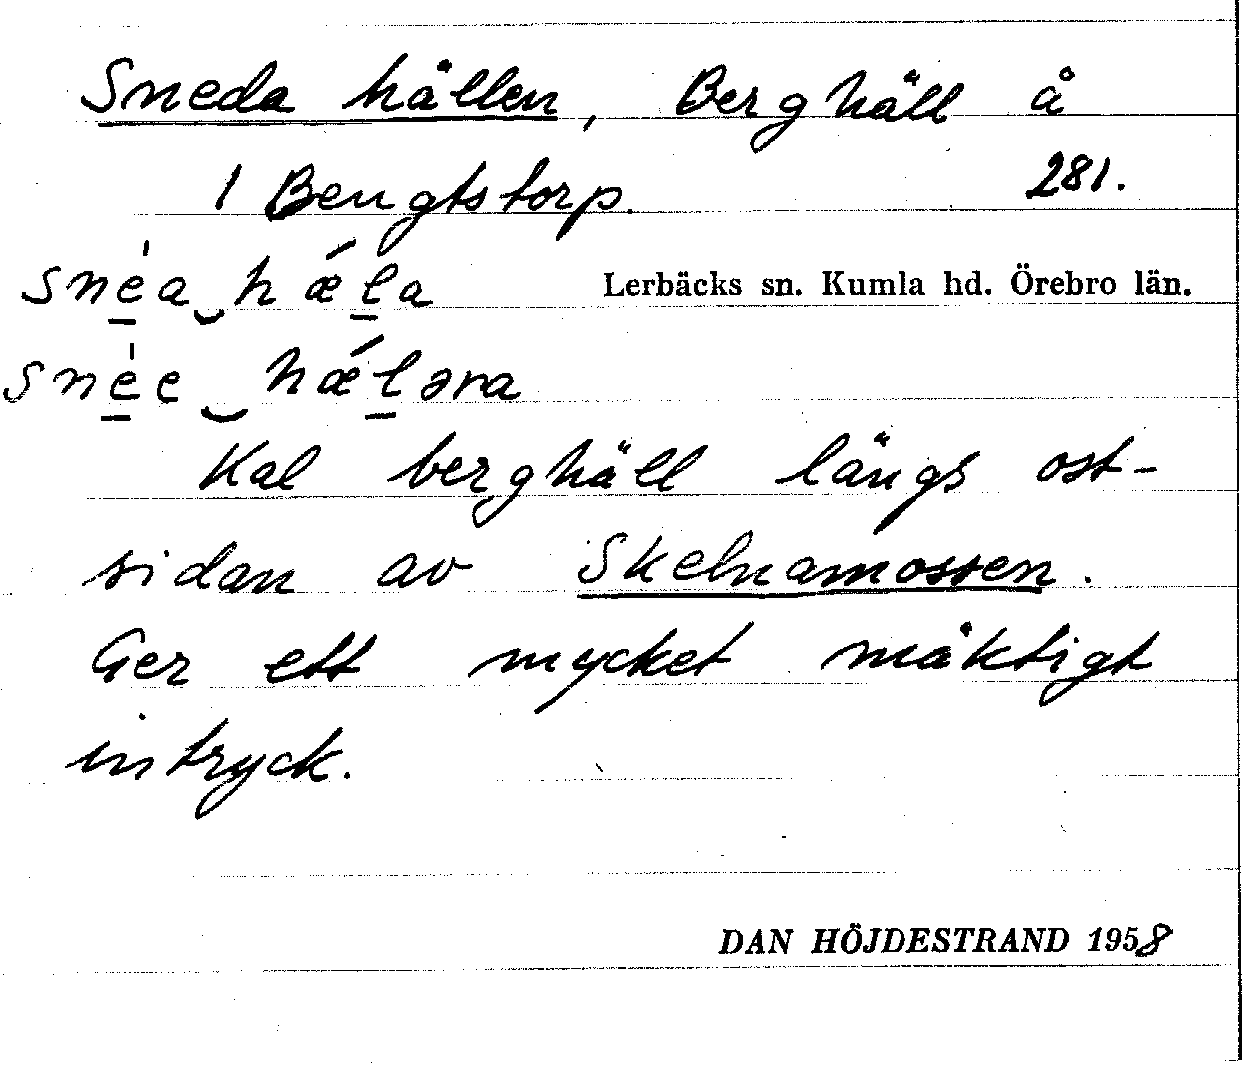 Sneda hällen, Berghäll å
1 Bengtstorp. 281.
snéa‿hǽla Lerbäcks sn. Kumla hd. Örebro län.
snée‿hǽləna
Kal berghäll längs ost-
sidan av Skelnamossen.
Ger ett mycket mäktigt
intryck.
DAN HÖJDESTRAND 1958